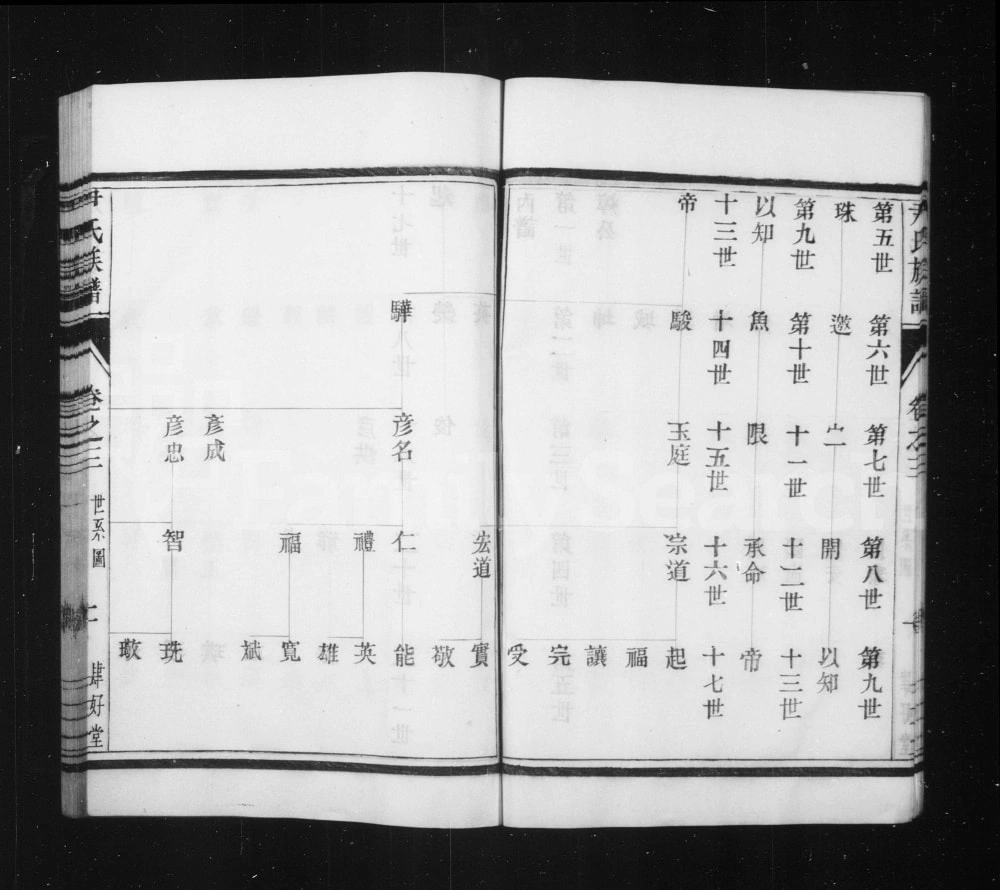 尹氏族譜
卷之三
第五世 第六世 第七世 第八世 第九世
珠 邀 開 以知
第九世 第十世 十一世 十二世 十三世
以知 魚 限 承命 帝
十三世 十四世 十五世 十六世 十七世
帝 駿 玉庭 宗道 起
福
讓
完
受
宏道 實
敬
驊 彦名 仁 能
禮 英
雄
福 寬
斌
彦成
彦忠 智 珗
敬
尹氏族譜
卷之三
世系圖
肆好堂